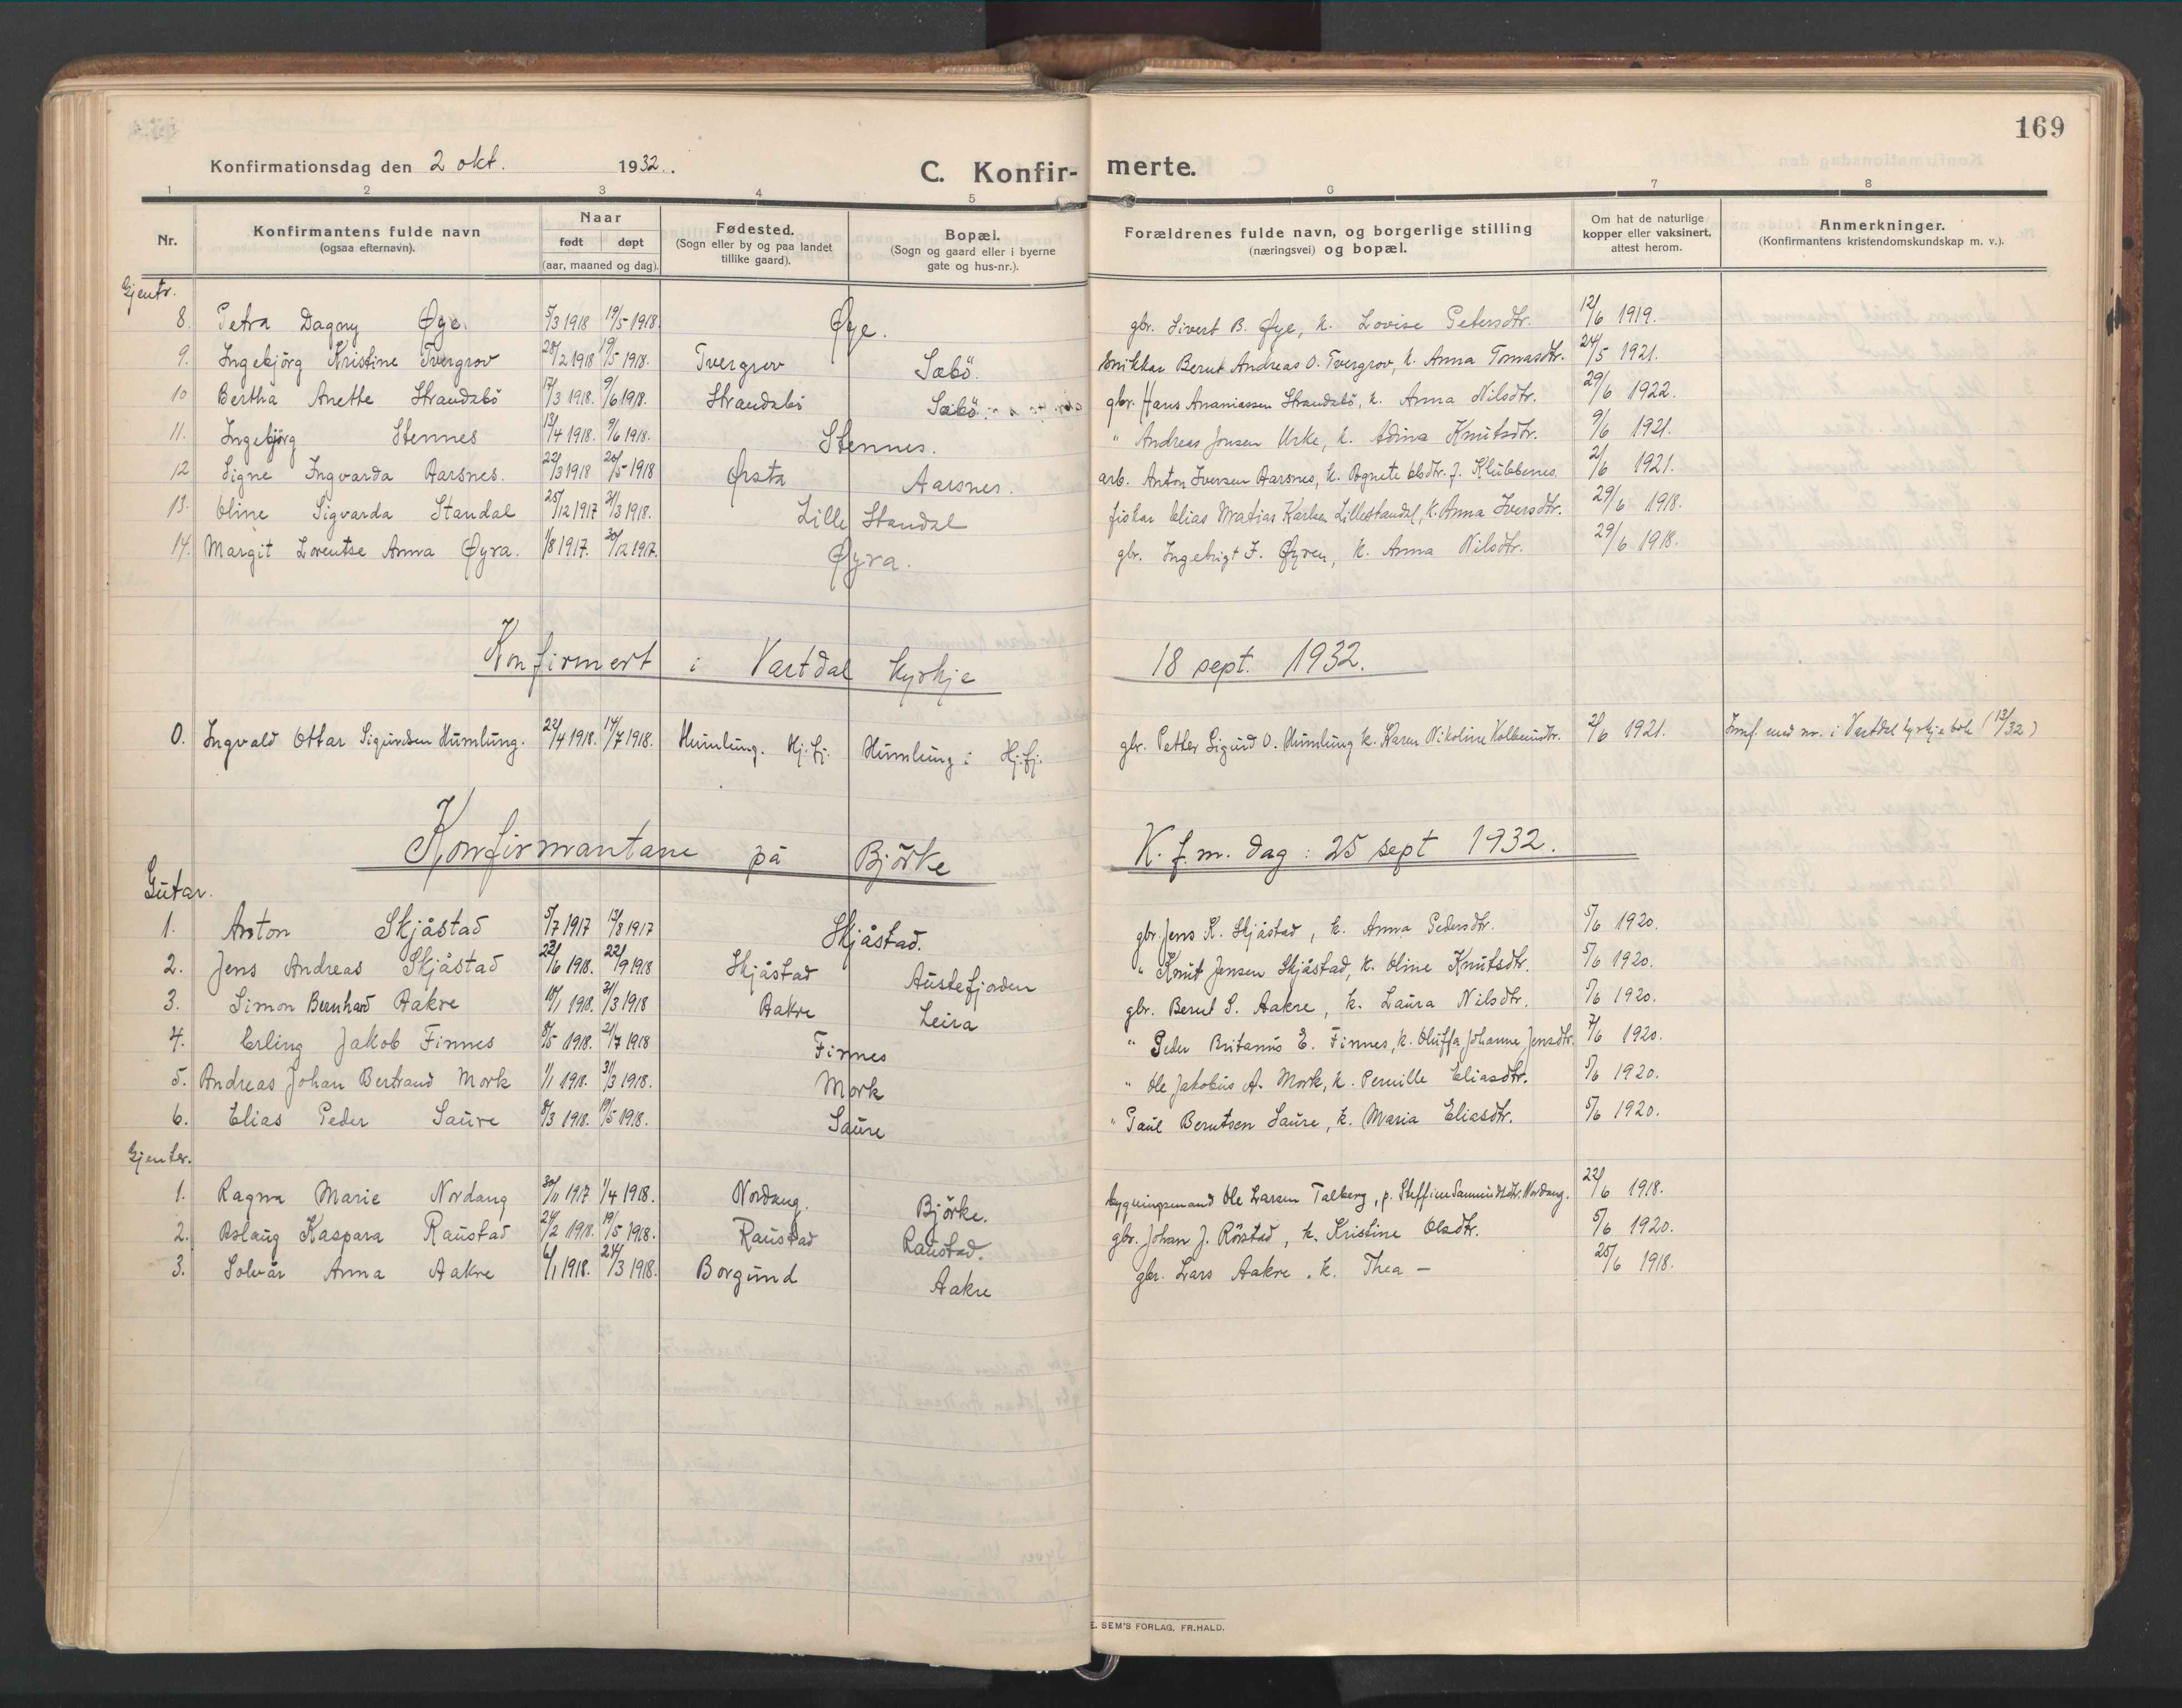 169
Konfirmationsdag den 2 okt. 1932. C. Konfir- merte.
1 2 3 4 5 6 7 8
Nr. Konfirmantens fulde navn (ogsaa efternavn). Naar født døpt (aar, maaned og dag). Fødested. (Sogn eller by og paa landet tillike gaard). Bopæl. (Sogn og gaard eller i byerne gate og hus-nr.). Forældrenes fulde navn, og borgerlige stilling (næringsvei) og bopæl. Om hat de naturlige kopper eller vaksinert, attest herom. Anmerkninger. (Konfirmantens kristendomskundskap m. v.).
Gjentr.
8. Petra Dagny Øye. 5/3 1918 19/5 1918. Øye. gbr. Sivert B. Øye, k. Lovise Petersdtr. 12/6 1919.
9. Ingebjörg Kristine Tvergrov 28/2 1918 19/5 1918. Tvergrov Sæbö. Snikkar Bernt Andreas O. Tvergrov, k. Anna Tomasdtr. 24/5 1921.
10 Bertha Anette Strandabö 17/3 1918. 9/6 1918. Strandabö Sæbö. gbr. Hans Ananiassen Strandabö, k. Anna Nilsdtr. 29/6 1922.
11. Ingebjörg Stennes 13/4 1918. 9/6 1918. Stennes. " Andreas Jonsen Urke, k. Adina Knutsdtr. 9/6 1921.
12 Signe Ingvarda Aarsnes. 22/3 1918 20/5 1918 Ørsta Aarsnes. arb. Anton Iversen Aarsnes, k. Agnete Olsdtr. f. Klubbenes 2/6 1921.
13. Oline Sigvarda Standal 25/12 1917 31/3 1918. Lille Standal fiskar Elias Matias Karlsen Lillestandal, k. Anna Iversdtr. 29/6 1918.
14. Margit Lorentse Anna Øyra. 1/8 1917. 30/12 1917. Øyra. gbr. Ingebrigt J. Øyren, k. Anna Nilsdtr. 29/6 1918.
Konfirmert i Vartdal kyrkje 18 sept. 1932.
0. Ingvald Ottar Sigurdsen Humlung. 22/4 1918. 14/7 1918. Humlung. Hj.fj. Humlung i Hj.fj. gbr. Petter Sigurd O. Humlung k. Karen Nikoline Kolbeinsdtr. 2/6 1921. Innf. med nr. i Vartdal kyrkjebok (13/32)
Konfirmantane på Björke K. f. m. dag: 25 sept 1932.
Gutar.
1. Anton Skjåstad 5/7 1917 13/8 1917 Skjåstad. gbr. Jens K. Skjåstad, k. Anna Pedersdtr. 5/6 1920.
2. Jens Andreas Skjåstad 23/6 1918. 22/9 1918 Skjåstad Austefjorden " Knut Jensen Skjåstad, k. Oline Knutsdtr. 5/6 1920.
3. Simon Bernhard Aakre 15/1 1918. 31/3 1918 Aakre Leira gbr. Bernt S. Aakre, k. Laura Nilsdtr. 5/6 1920.
4. Erling Jakob Finnes 8/5 1918. 21/7 1918 Finnes " Peder Britanus E. Finnes, k. Oluffa Johanne Jensdtr. 7/6 1920.
5. Andreas Johan Bertrand Mork 1/1 1918. 31/3 1918. Mork " Ole Jakobus A. Mork, k. Pernille Eliasdtr. 5/6 1920.
6. Elias Peder Saure 8/3 1918. 19/5 1918. Saure " Paul Berntsen Saure, k. Maria Eliasdtr. 5/6 1920.
Gjenter.
1. Ragna Marie Nordang 30/11 1917 1/4 1918. Nordang. Björke. bygningsmand Ole Larsen Talberg, p. Steffine Samundsdtr. Nordang. 22/6 1918.
2. Aslaug Kaspara Raustad 24/2 1918. 19/5 1918. Raustad Raustad. gbr. Johan J. Rörstad, k. Kristine Olsdtr. 5/6 1920.
3. Solvår Anna Aakre 6/1 1918. 24/3 1918. Borgund Aakre gbr. Lars Aakre. k. Thea — 25/6 1918.
E. SEM'S FORLAG, FR.HALD.